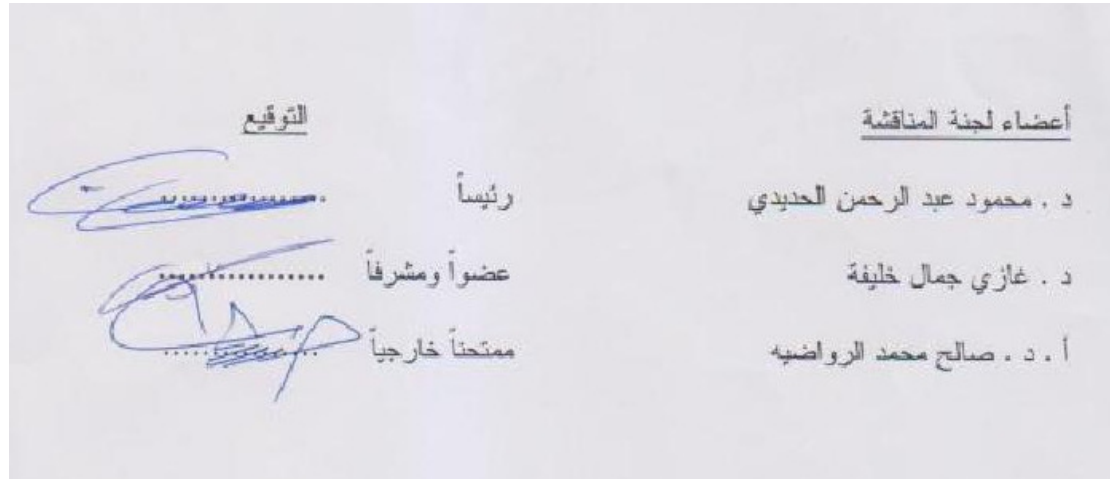 أعضاء لجنة المناقشة التوقيع
د . محمود عبد الرحمن الحديدي رئيساً ................
د . غازي جمال خليفة عضواً ومشرفاً ................
أ . د . صالح محمد الرواضيه ممتحناً خارجياً ................